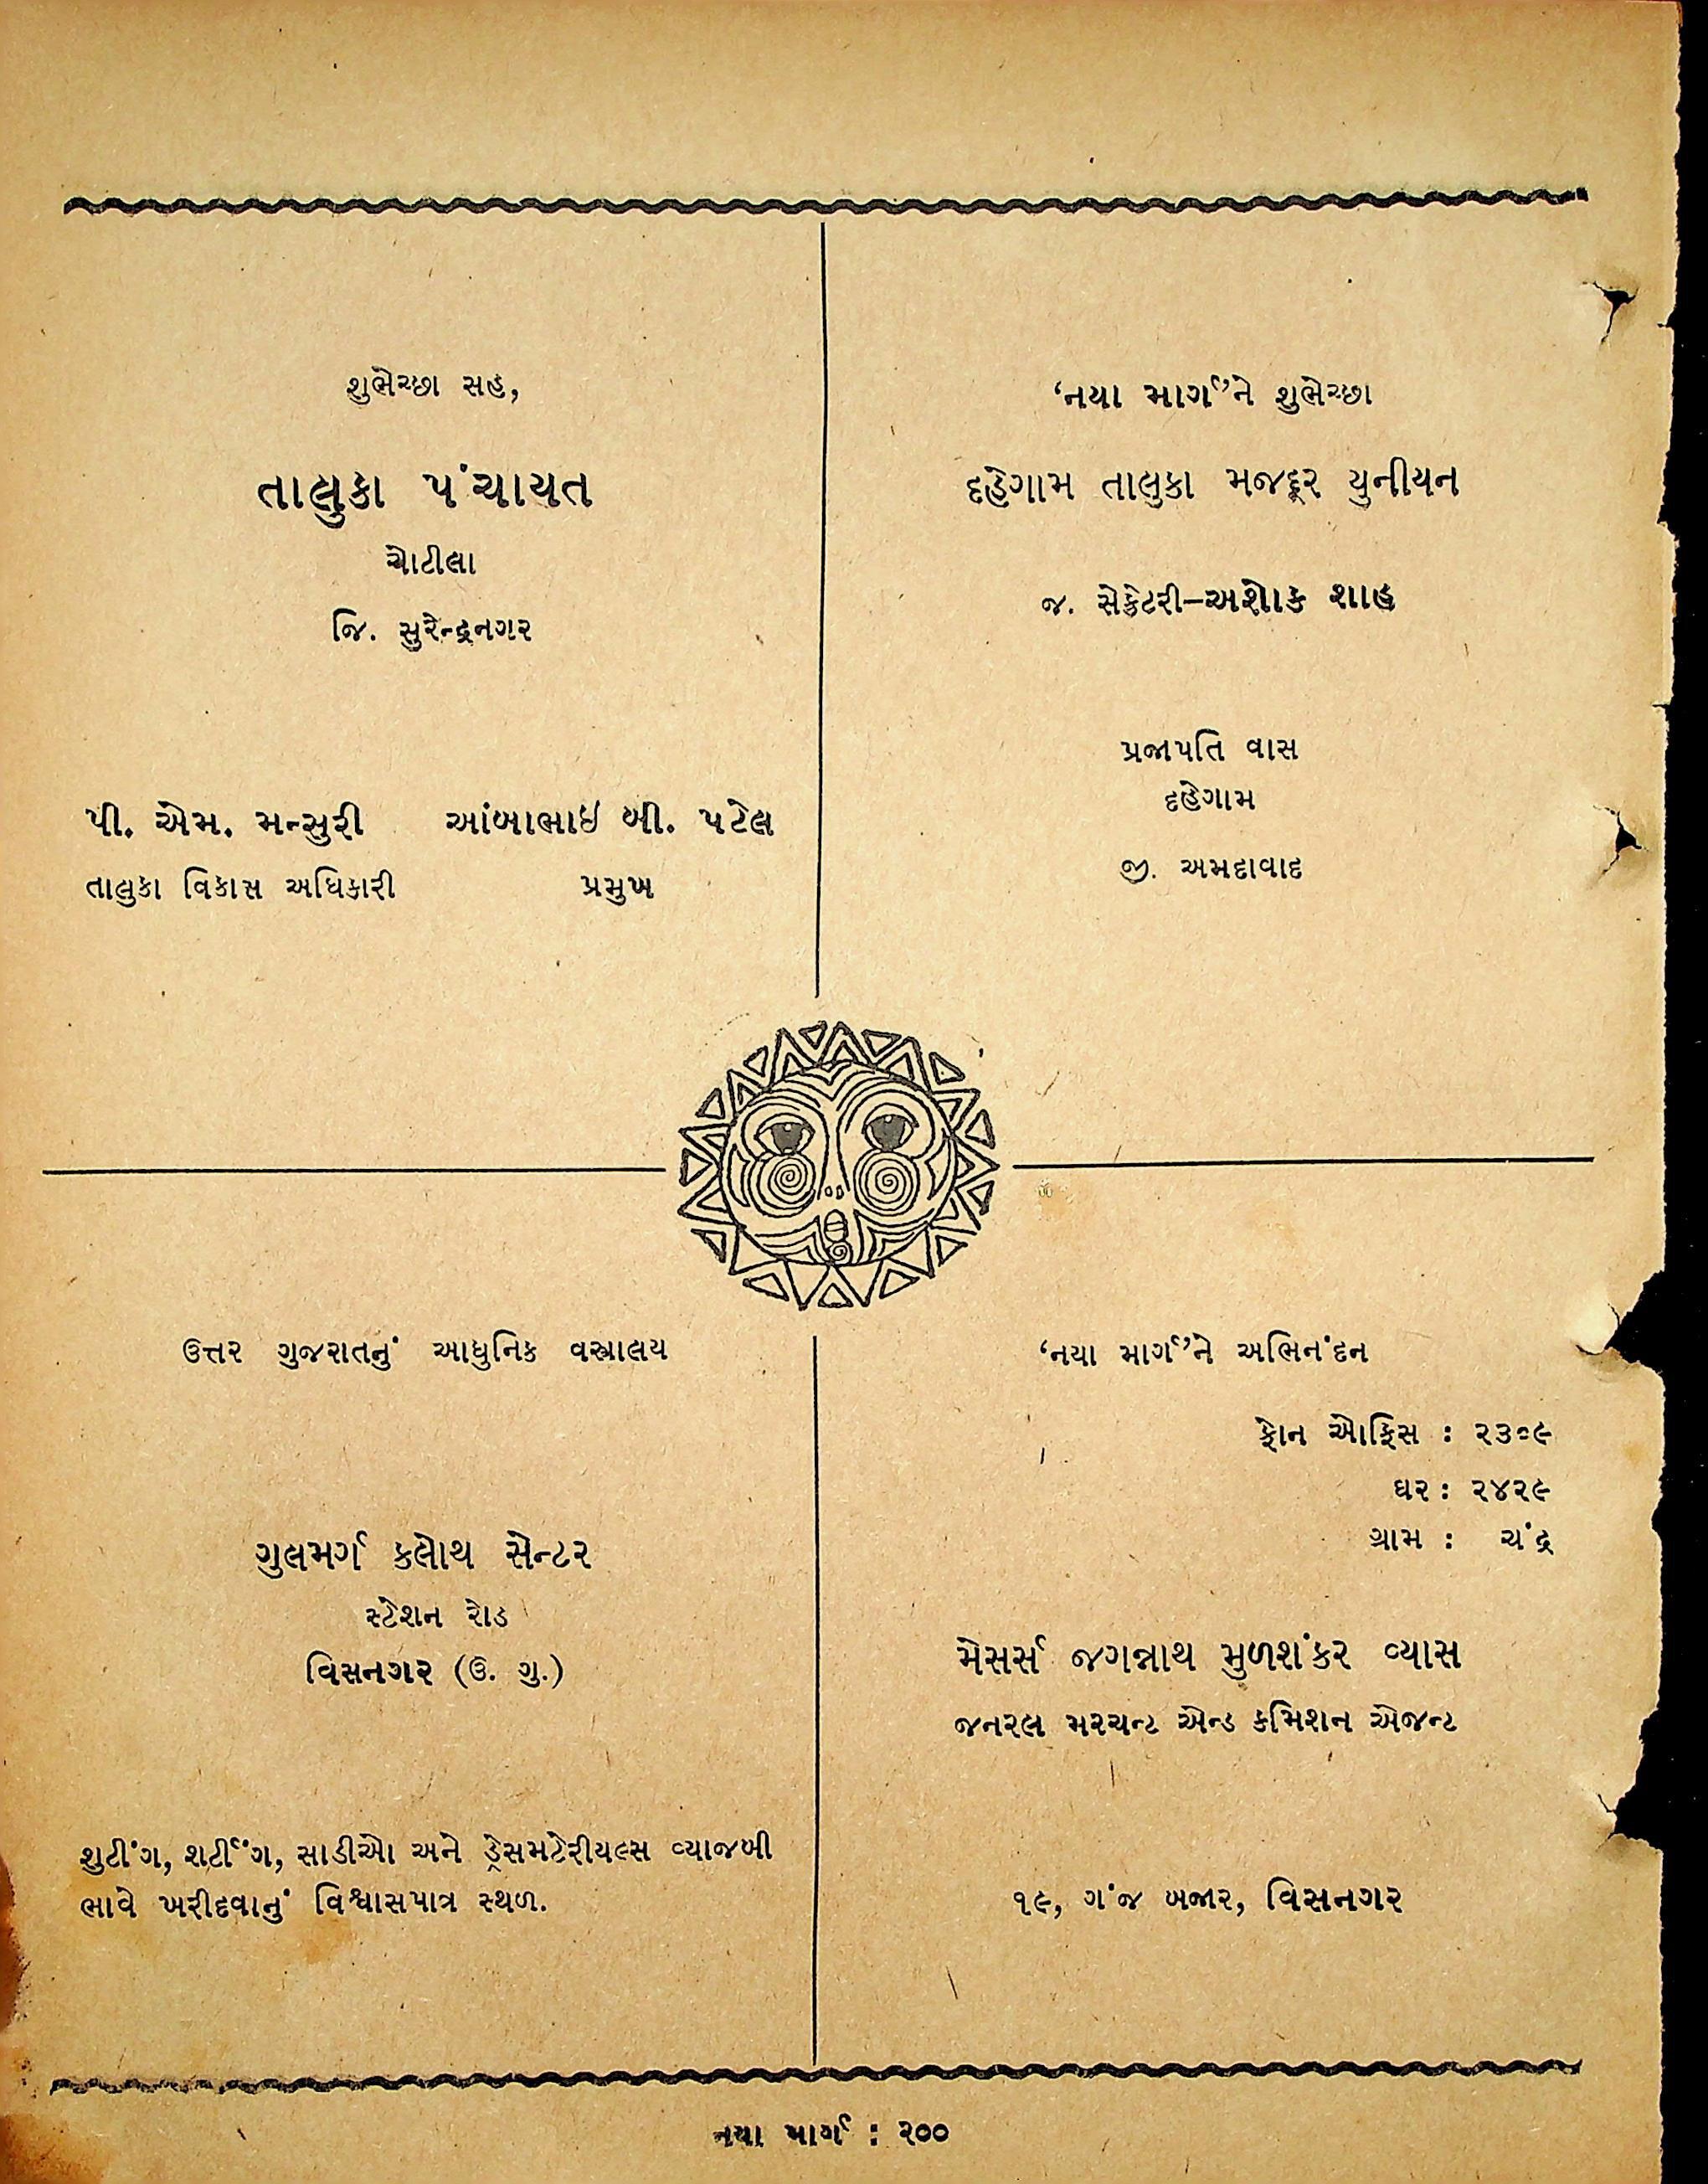 શુભેચ્છા સહ,
તાલુકા પંચાયત
ચોટીલા
જિ. સુરેન્દ્રનગર
પી. એમ. મન્સુરી આંબાભાઇ બી. પટેલ
તાલુકા વિકાસ અધિકારી પ્રમુખ
‘નયા માર્ગ’ને શુભેચ્છા
દહેગામ તાલુકા મજદૂર યુનીયન
જ. સેક્રેટરી–અશોક શાહ
પ્રજાપતિ વાસ
દહેગામ
જી. અમદાવાદ
ઉત્તર ગુજરાતનું આધુનિક વસ્ત્રાલય
ગુલમર્ગ કલોથ સેન્ટર
સ્ટેશન રોડ
વિસનગર (ઉ. ગુ.)
શુટીંગ, શર્ટીંગ, સાડીઓ અને ડ્રેસમટેરીયલ્સ વ્યાજબી
ભાવે ખરીદવાનું વિશ્વાસપાત્ર સ્થળ.
‘નયા માર્ગ’ને અભિનંદન
ફોન ઓફિસ : ૨૩૦૯
ઘર : ૨૪૨૯
ગ્રામ : ચંદ્ર
મેસર્સ જગન્નાથ મુળશંકર વ્યાસ
જનરલ મરચન્ટ એન્ડ કમિશન એજન્ટ
૧૯, ગંજ બજાર, વિસનગર
નયા માર્ગ : ૨૦૦